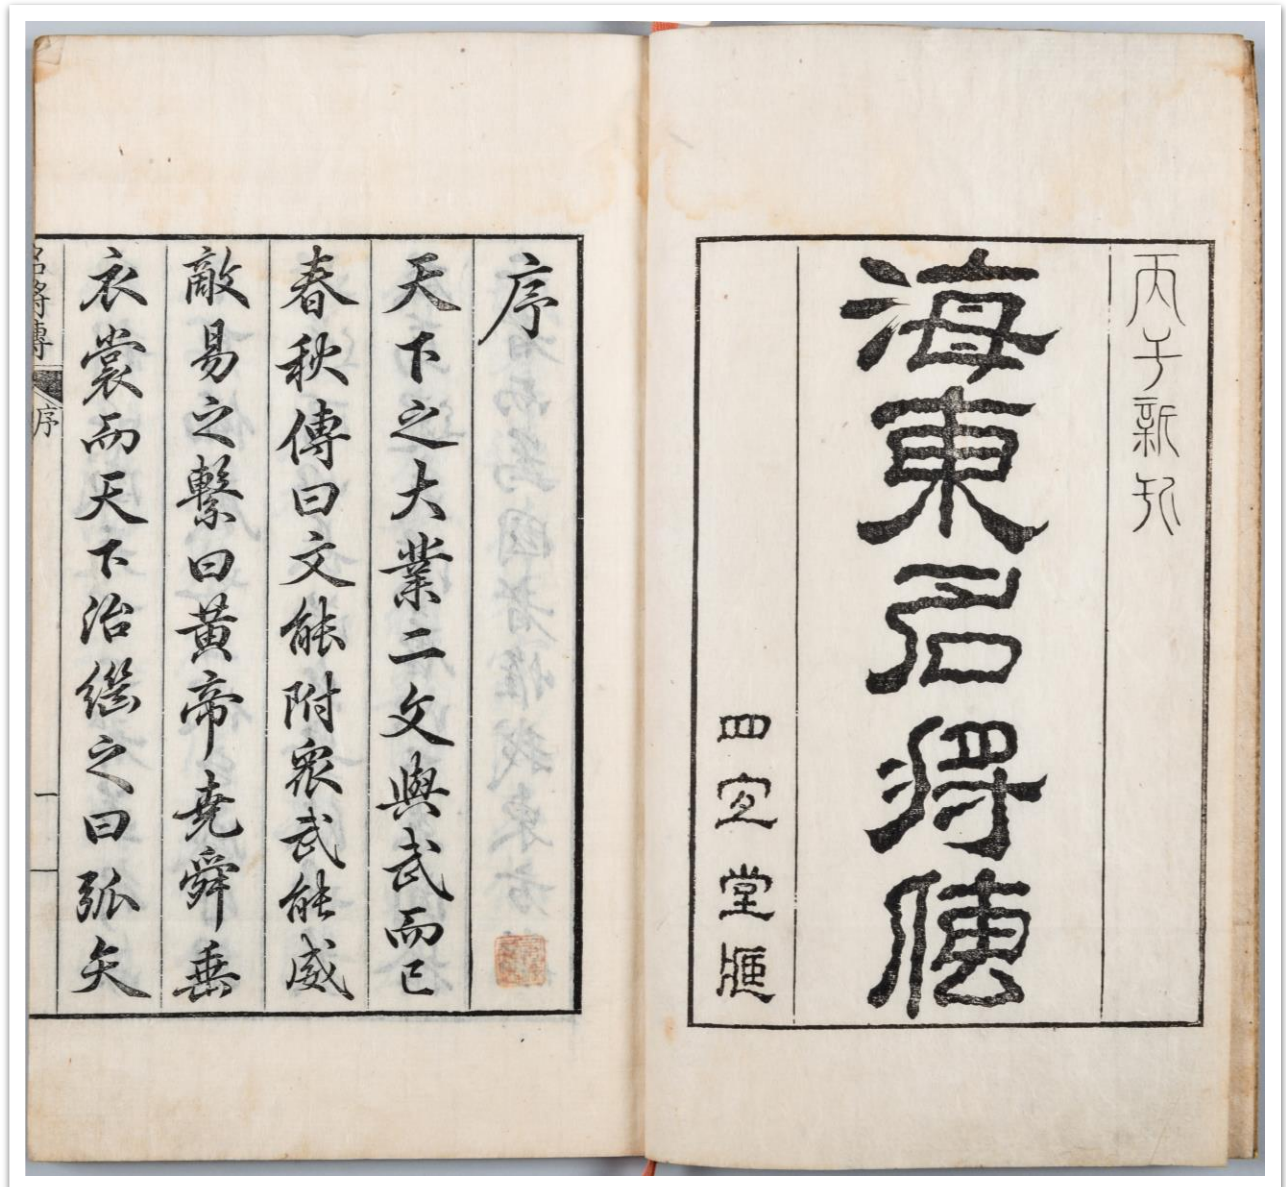 丙子新刊
海東名將傳
四宜堂
序
天下之大業二文與武而已
春秋傳曰文能附衆武能威
敵易之繫曰黃帝堯舜垂
衣裳而天下治繼之曰弧矢
名將傳
序
一